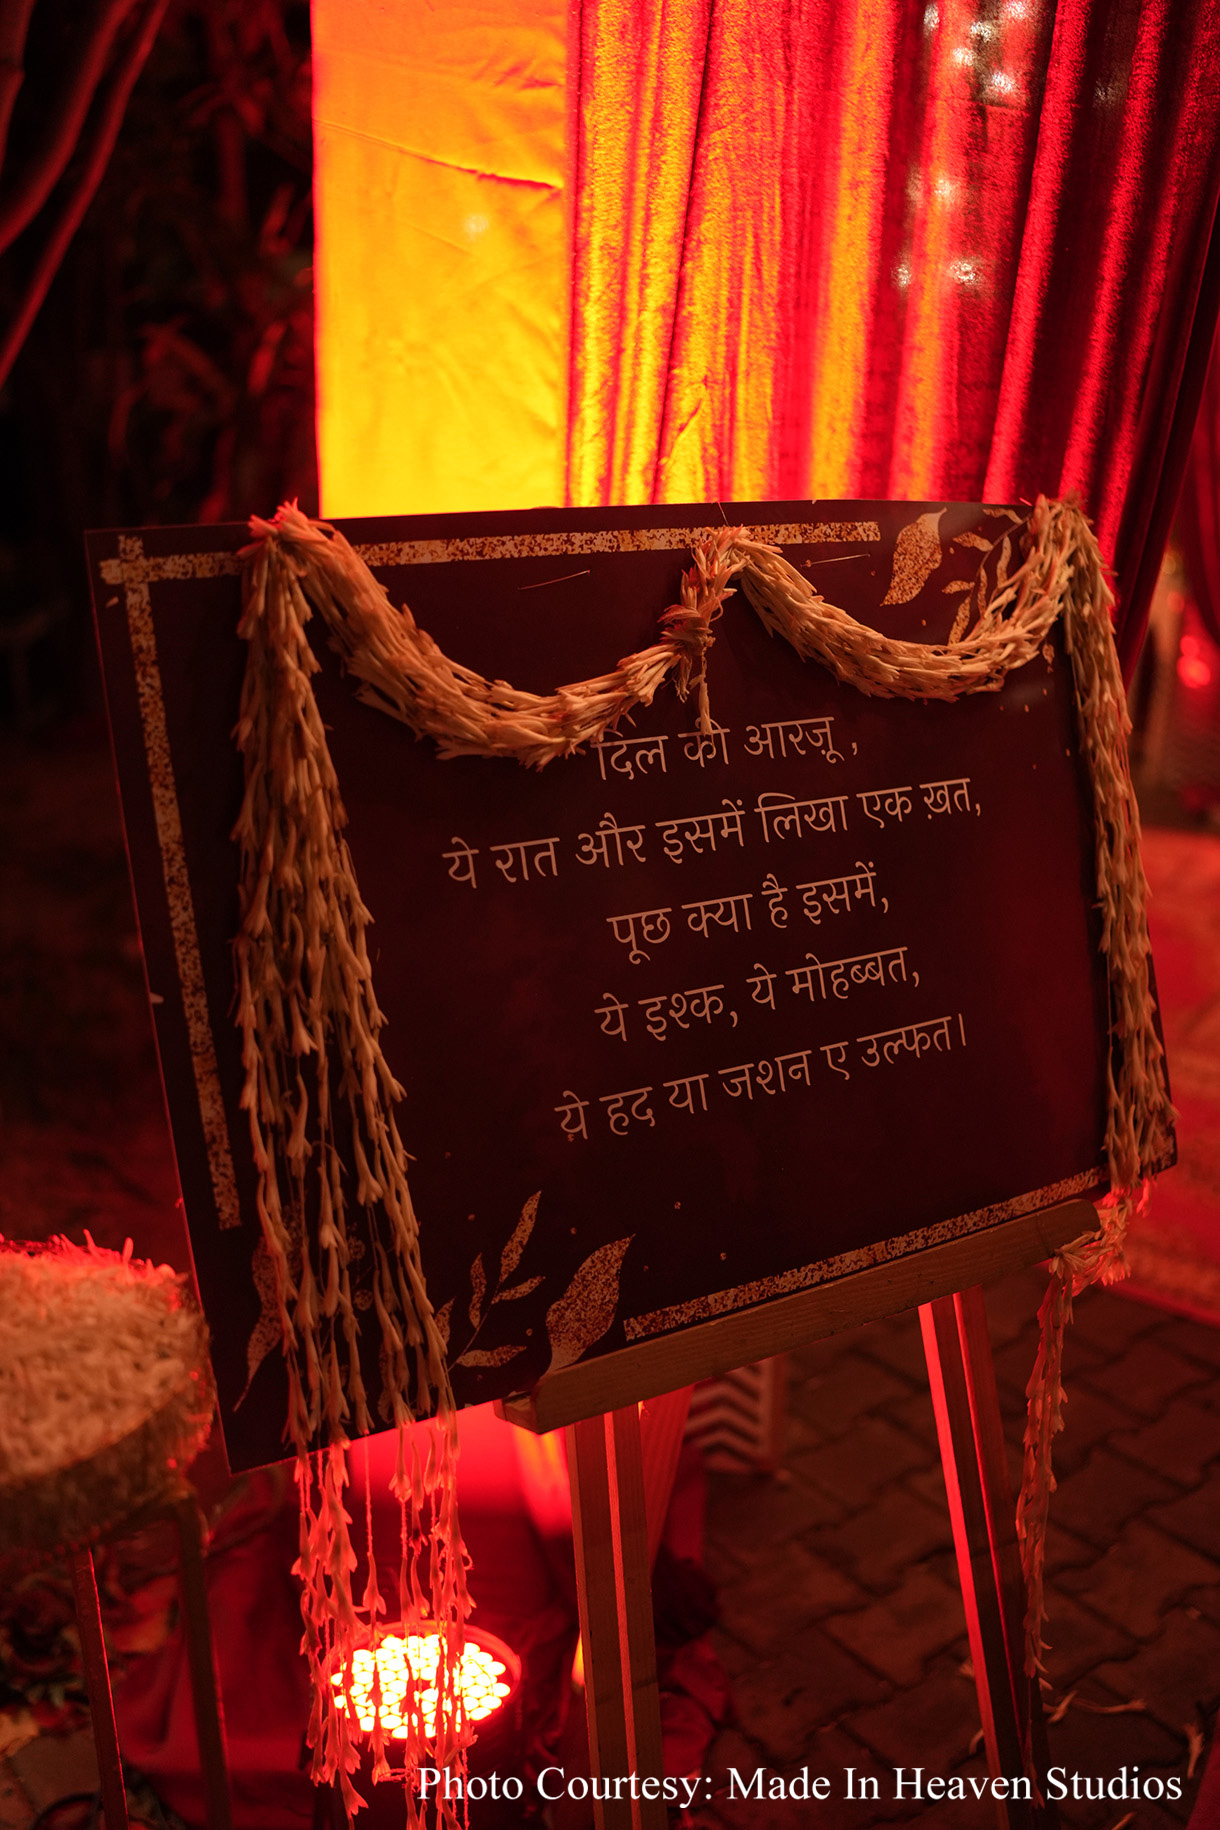 दिल की आरज़ू ,
ये रात और इसमें लिखा एक ख़त,
पूछ क्या है इसमें,
ये इश्क, ये मोहब्बत,
ये हद या जशन ए उल्फत।
Photo Courtesy: Made In Heaven Studios